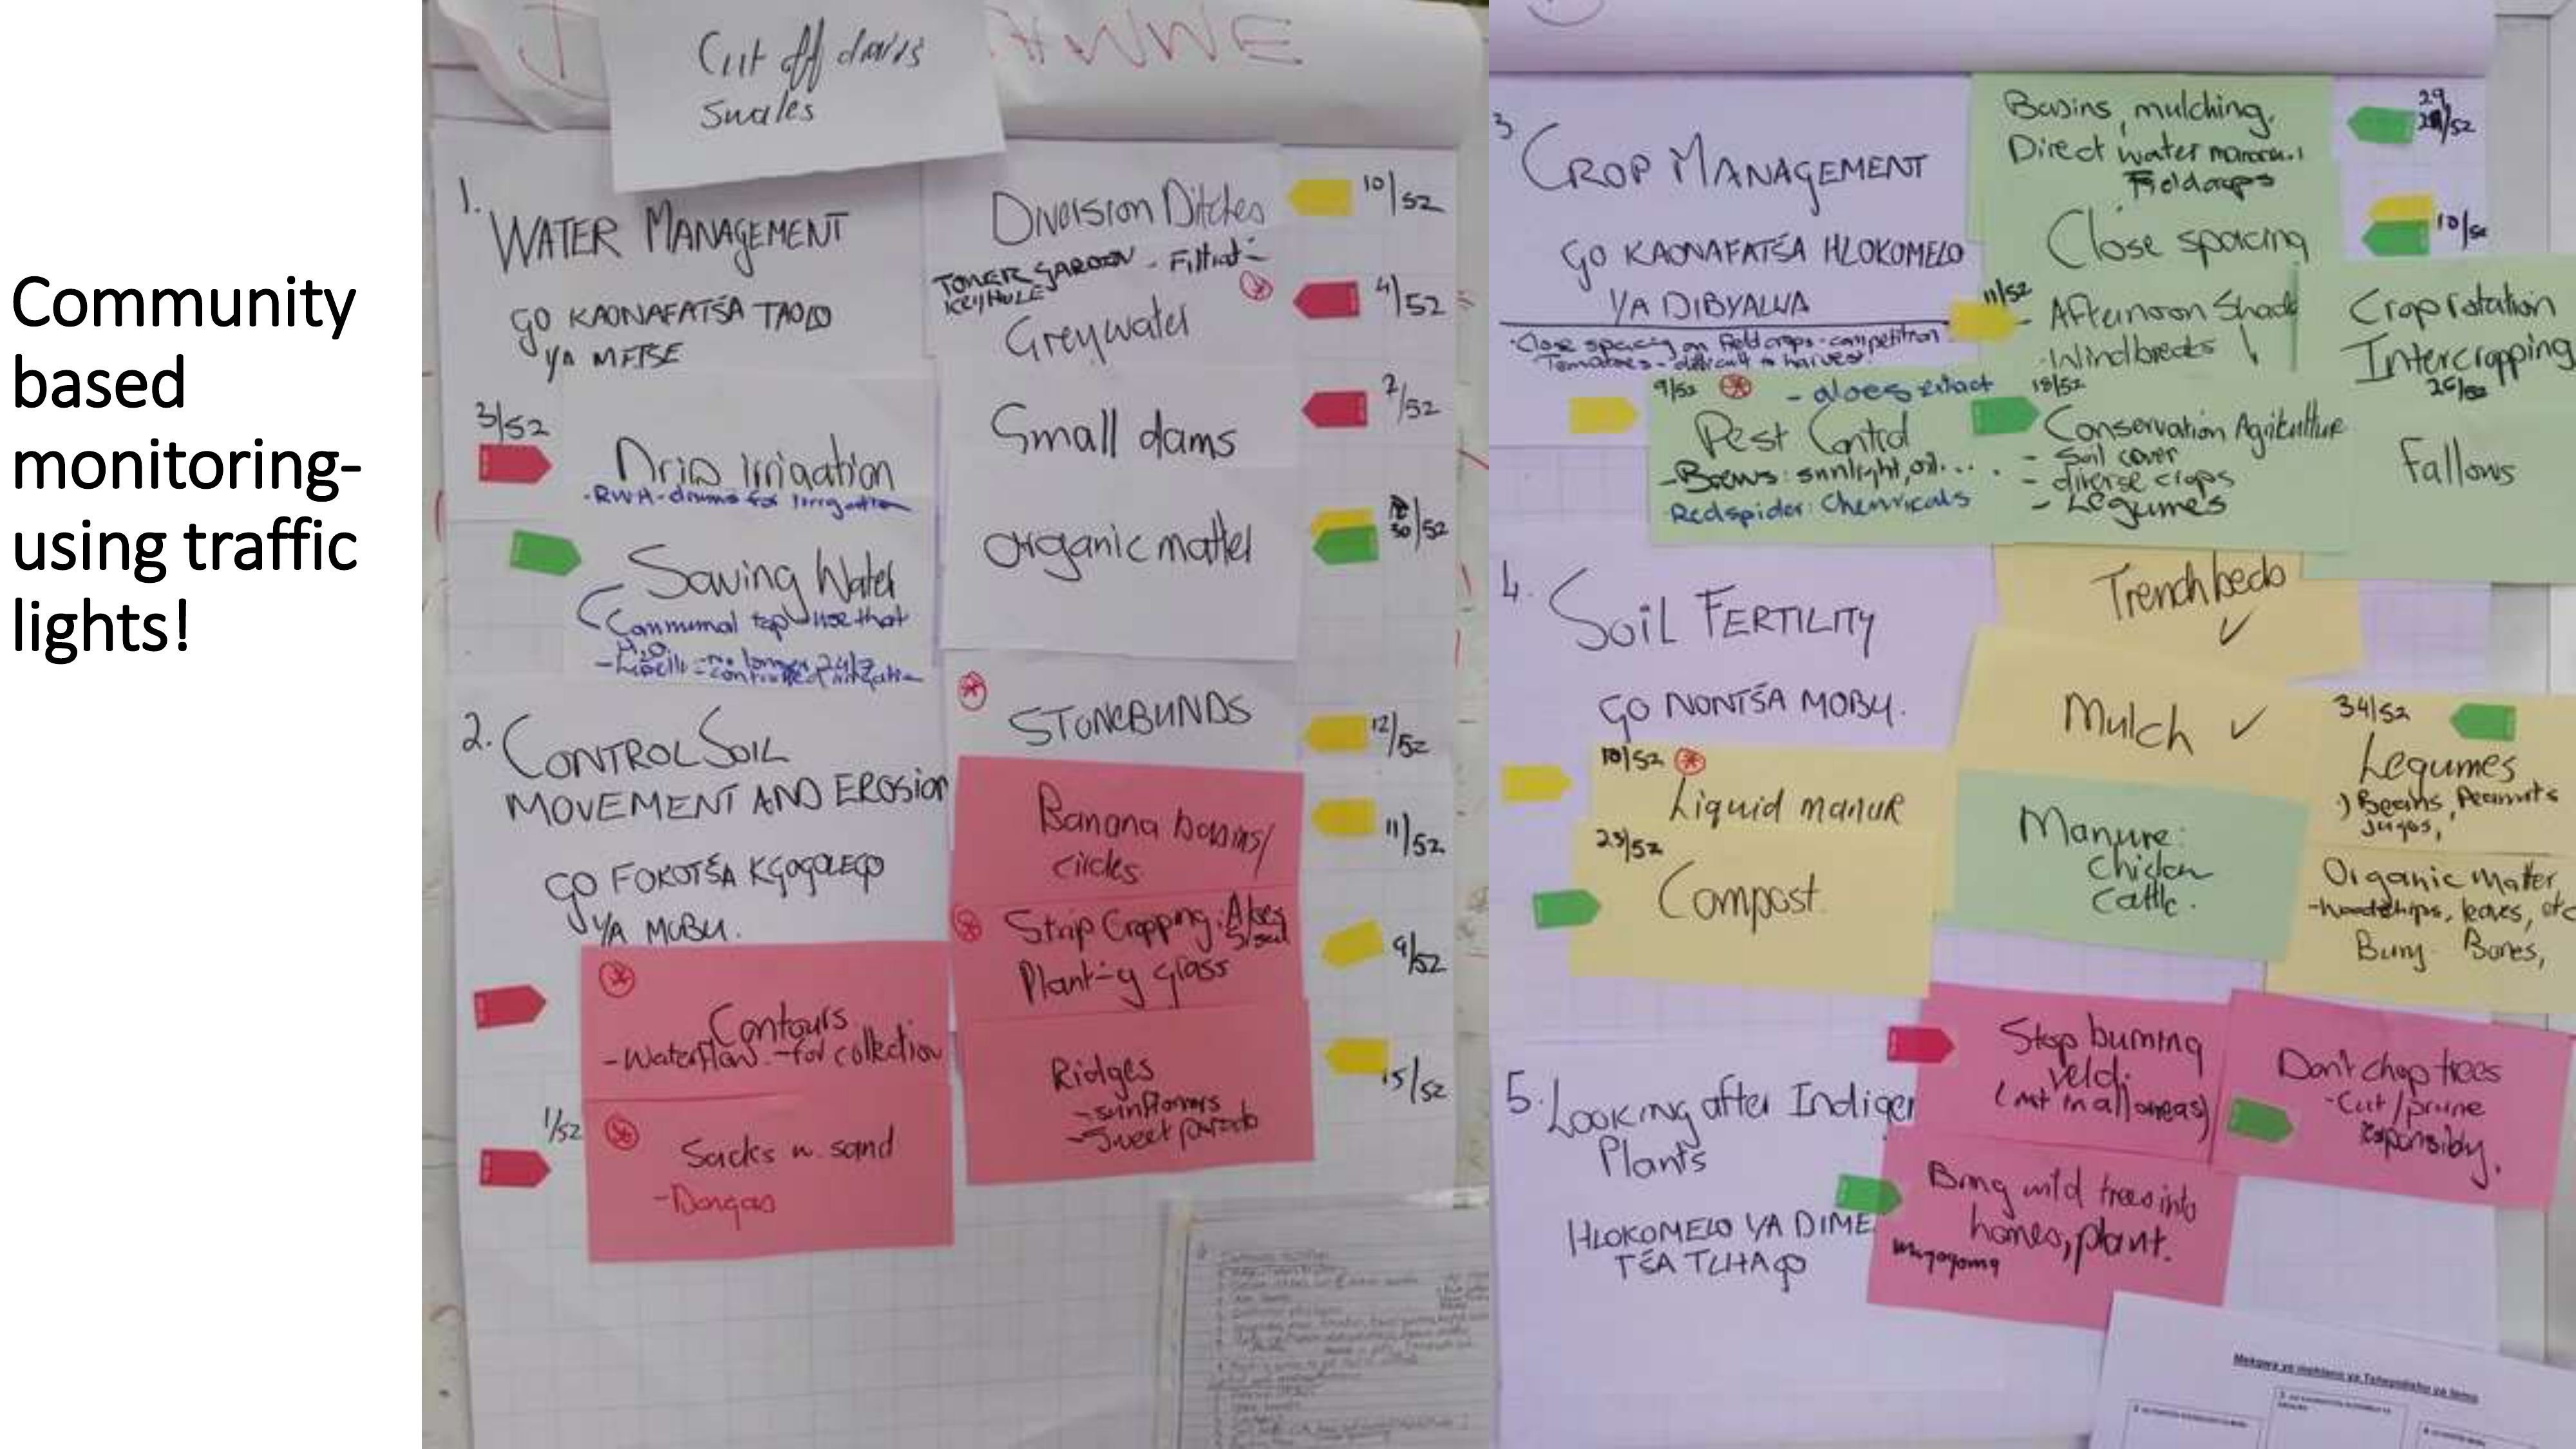 Community
based
monitoring-
using traffic
lights!
Cut off drains
Swales
1.
WATER MANAGEMENT
GO KAONAFATŠA TAOLO
YA MEETSE
Diversion Ditches
10/52
TOWER GARDEN - Filtrat-
KEYHOLE
Greywater
4/52
Small dams
2/52
3/52
Drip irrigation
-RWH-drums for irrigation
Organic matter
30/52
Saving Water
Communal tap use that
H2O
no longer 24/7
- controlled irrigation
2. CONTROL SOIL
MOVEMENT AND EROSION
GO FOKOTŠA KGOGOLEGO
YA MOBU.
STONEBUNDS
12/52
Banana basins/
circles
11/52
Strip Cropping: Aloes
Sisal
Plant-g grass
9/52
Contours
-Waterflow -for collection
Ridges
-sunflowers
-Sweet potato
15/52
1/52
Sacks w. sand
-Dongas
3.
CROP MANAGEMENT
GO KAONAFATŠA HLOKOMELO
YA DIBYALWA
·Close spacing on field crops-competition
Tomatoes-difficult to harvest
Basins, mulching,
Direct water
Fieldcrops
29
/52
Close spacing
10/52
11/52
-Afternoon Shade
-Windbreaks
Crop rotation
Intercropping
26/52
9/52
- aloes extact
Pest Control
-Brews: sunlight, oil...
Redspider: Chemicals
18/52
Conservation Agriculture
- Soil cover
- diverse crops
- Legumes
Fallows
4.
SOIL FERTILITY
GO NONTŠA MOBU.
Trenchbeds
✓
Mulch ✓
34/52
Legumes
Beans, Peanuts
Jugos,
10/52
Liquid manure
23/52
Compost.
Manure:
Chicken
Cattle.
Organic Matter,
-woodchips, leaves, etc
Bury Bones,
5. Looking after Indigen
Plants
HLOKOMELO YA DIME
TŠA TLHAGO
Stop burning
veld.
(not in all areas)
Don't chop trees
-Cut/prune
responsibly.
Bring wild trees into
homes, plant.